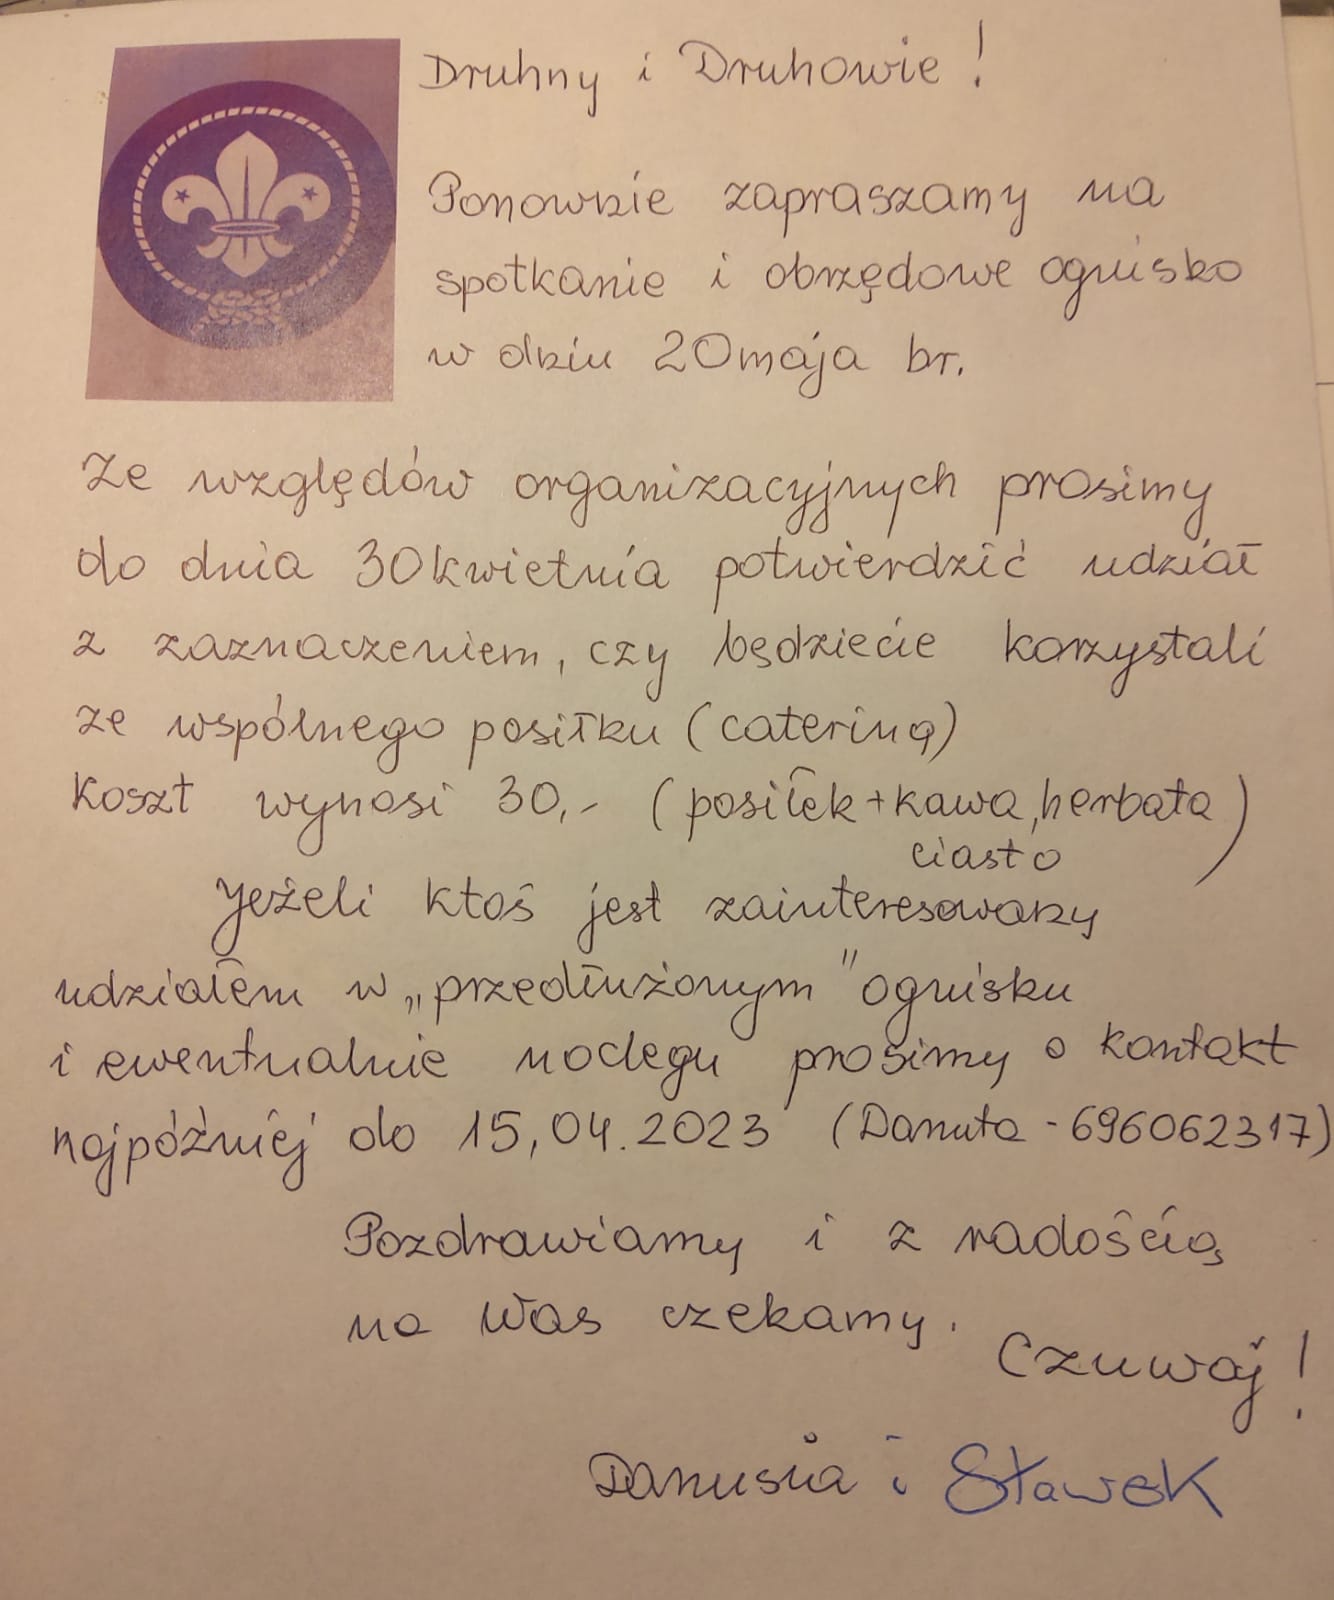 Druhny i Druhowie!
Ponownie zapraszamy na
spotkanie i obrzędowe ognisko
w dniu 20 maja br.
Ze względów organizacyjnych prosimy
do dnia 30 kwietnia potwierdzić udział
z zaznaczeniem, czy będziecie korzystali
ze wspólnego posiłku (catering)
Koszt wynosi 30,- (posiłek + kawa, herbata)
ciasto
Jeżeli ktoś jest zainteresowany
udziałem w „przedłużonym" ognisku
i ewentualnie noclegu prosimy o kontakt
najpóźniej do 15,04.2023 (Danuta - 696062317)
Pozdrawiamy i z radością
na Was czekamy.
Czuwaj!
Danusia i Sławek